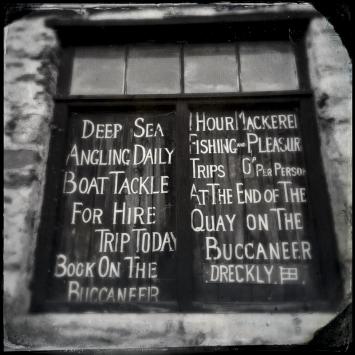 DEEP SEA
ANGLING DAILY
BOAT TACKLE
FOR HIRE
TRIP TODAY
BOOK ON THE
BUCCANEER
1 HOUR MACKEREL
FISHING AND PLEASUR
TRIPS PER PERSON
AT THE END OF THE
QUAY ON THE
BUCCANEER
DRECKLY